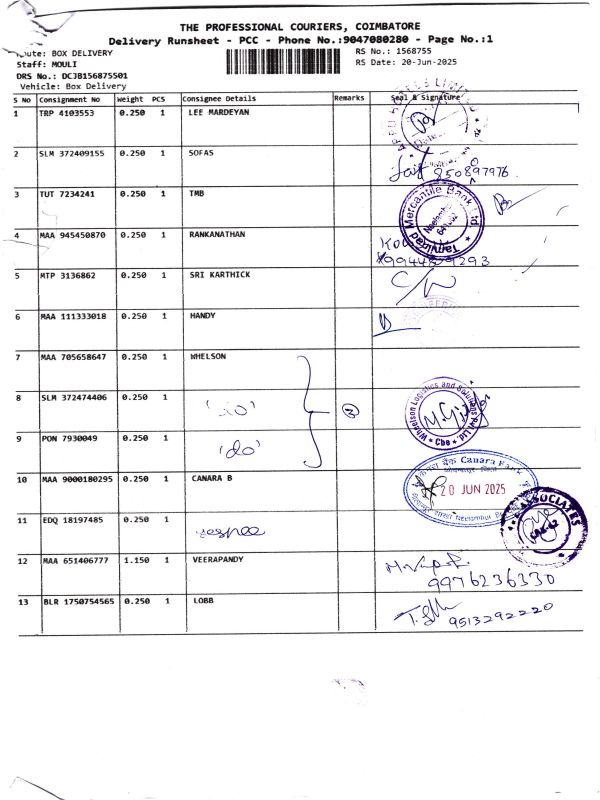 THE PROFESSIONAL COURIERS, COIMBATORE
Delivery Runsheet - PCC - Phone No.:9047080280 - Page No.:1
Route: BOX DELIVERY RS No.: 1568755
Staff: MOULI RS Date: 20-Jun-2025
DRS No.: DCJB156875501
Vehicle: Box Delivery
S No Consignment No Weight PCS Consignee Details Remarks Seal & Signature
1 TRP 4103553 0.250 1 LEE MARDEYAN
2 SLM 372409155 0.250 1 SOFAS
850897976
3 TUT 7234241 0.250 1 TMB
Tamilnad Mercantile Bank Ltd
4 MAA 945450870 0.250 1 RANKANATHAN
5 MTP 3136862 0.250 1 SRI KARTHICK
6 MAA 111333018 0.250 1 HANDY
7 MAA 705658647 0.250 1 WHELSON
8 SLM 372474406 0.250 1 'do' 3
Whelson Logistics and Solutions Pvt Ltd. * Cbe *
9 PON 7930049 0.250 1 'do'
10 MAA 9000180295 0.250 1 CANARA B
Canara Bank
20 JUN 2025
11 EDQ 18197485 0.250 1
ASSOCIATES
12 MAA 651406777 1.150 1 VEERAPANDY
9976236330
13 BLR 1750754565 0.250 1 LOBB
9513292220